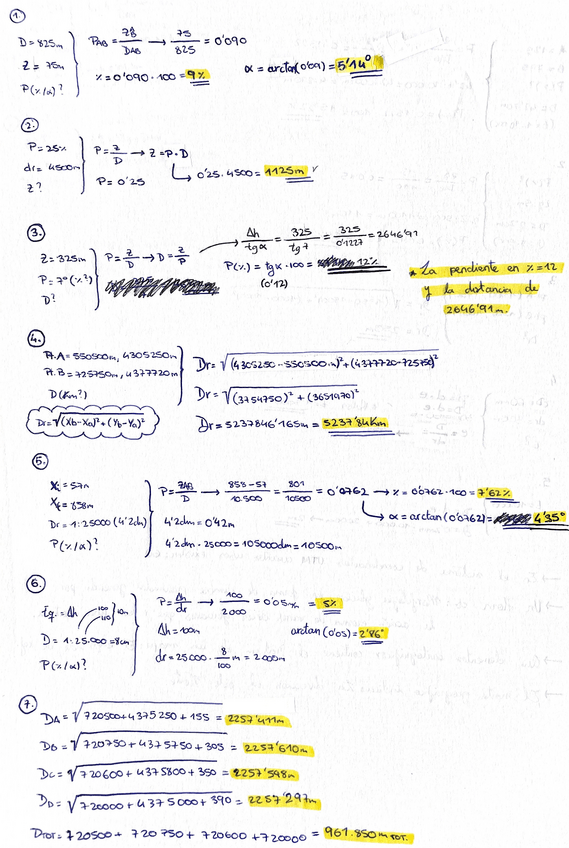 1.
D = 825m
Z = 75m
P(%/α)?
PAB = ZB/DAB → 75/825 = 0'090
% = 0'090 · 100 = 9%
α = arctan(0'09) = 5'14°
2.
P = 25%
dr = 4500m
Z?
P = Z/D → Z = P · D
P = 0'25
0'25 · 4500 = 1125m
3.
Z = 325m
P = 7° (%?)
D?
P = Z/D → D = Z/P
Δh/tgα = 325/tg7 = 325/0'1227 = 2646'91
P(%) = tgα · 100 = 12%
(0'12)
* La pendiente en % = 12
y la distancia de
2646'91m.
4.
Pt.A = 550500m, 4305250m
Pt.B = 725750m, 4377720m
D (Km?)
Dr = √(Xb-Xa)² + (Yb-Ya)²
Dr = √(4305250 - 550500m)² + (4377720 - 725750)²
Dr = √(3754750)² + (3651970)²
Dr = 5237846'165m = 5237'84Km
5.
X = 57m
X = 858m
Dr = 1:25000 (4'2dm)
P(%/α)?
P = ZAB/D → 858-57/10.500 = 801/10500 = 0'0762 → % = 0'0762 · 100 = 7'62%
4'2dm = 0'42m
α = arctan(0'0762) = 4'35°
4'2dm · 25000 = 105000dm = 10500m
6.
Eq. = Δh 100 110 } 10m
D = 1:25.000 = 8cm
P(%/α)?
P = Δh/dr → 100/2000 = 0'05 = 5%
Δh = 100m
arctan(0'05) = 2'86°
dr = 25000 · 8/100 m = 2000m
7.
DA = √720500 + 4375250 + 155 = 2257'411m
DB = √720750 + 4375750 + 305 = 2257'610m
DC = √720600 + 4375800 + 350 = 2257'598m
DD = √720000 + 4375000 + 390 = 2257'297m
DTOT = 720500 + 720750 + 720600 + 720000 = 961.850 m TOT.